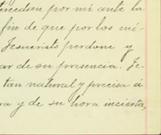 terceden por mí ante la
fin de que por los mé-
Jesucristo perdone y
ar de su presencia. Je-
tan natural y precisa á
ra y de su hora incierta,